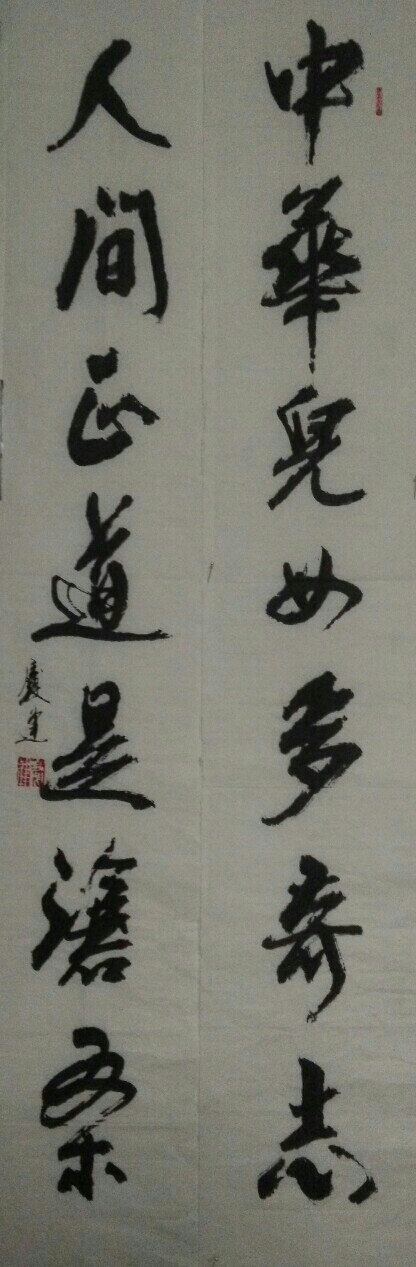 中華兒女多奇志
人間正道是滄桑